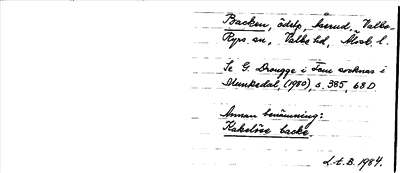 Backen, ödetp, Åserud, Valbo-
Ryrs sn, Valbo hd, Älvsb. l.
Se G. Drougge i Fem socknar i
Munkedal, (1980), s. 385, 68 D
Annan benämning:
Kakelöse backe.
L.t.B. 1984.